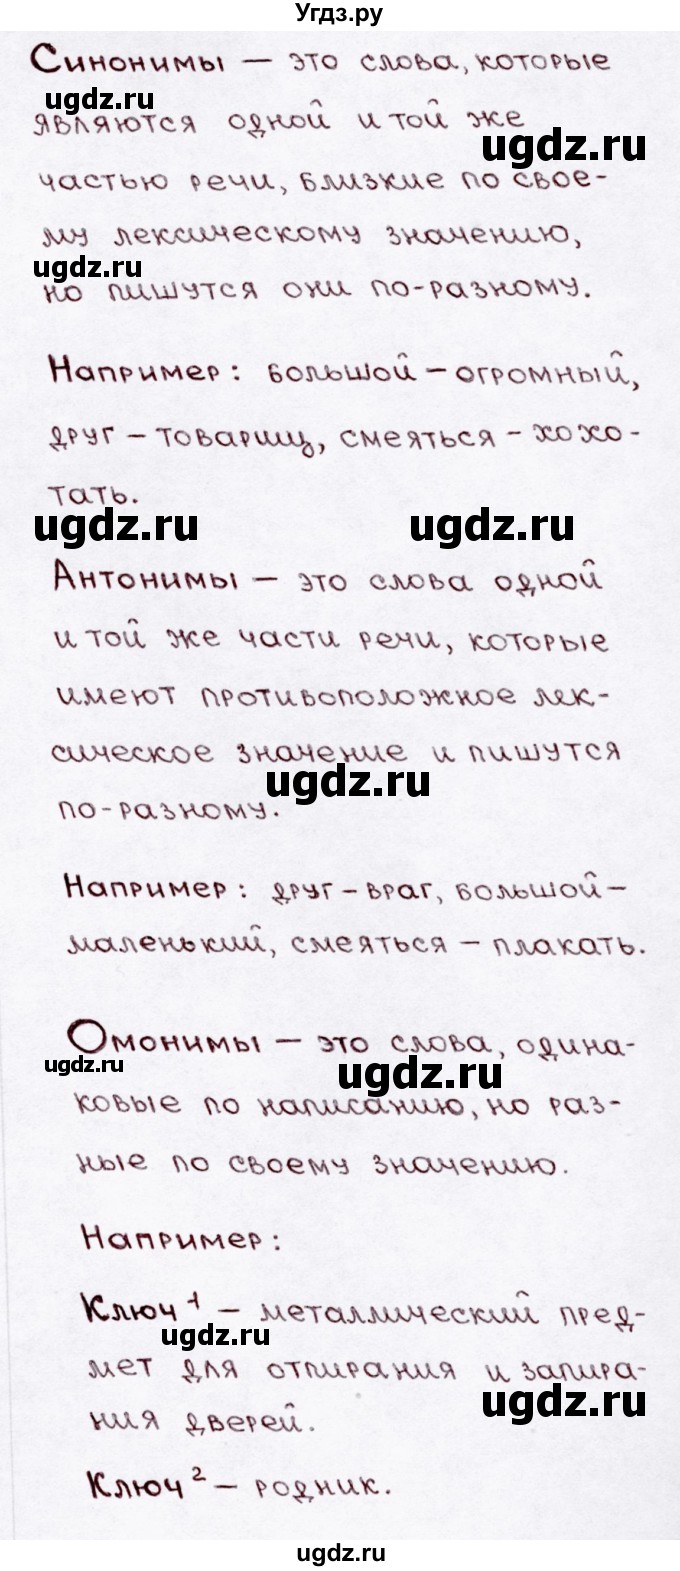 Угдз.ру
Синонимы — это слова, которые
ugdz.ru
являются одной и той же
ugdz.ru
частью речи, близкие по свое-
му лексическому значению,
ugdz.ru
но пишутся они по-разному.
Например: большой — огромный,
друг — товарищ, смеяться — хохо-
тать.
ugdz.ru ugdz.ru
Антонимы — это слова одной
и той же части речи, которые
имеют противоположное лек-
сическое значение и пишутся
ugdz.ru
по-разному.
Например: друг — враг, большой —
маленький, смеяться — плакать.
Омонимы — это слова, одина-
ugdz.ru ugdz.ru
ковые по написанию, но раз-
ные по своему значению.
Например:
Ключ¹ — металлический пред-
ugdz.ru
мет для отпирания и запира-
ugdz.ru
ния дверей.
Ключ² — родник.
ugdz.ru